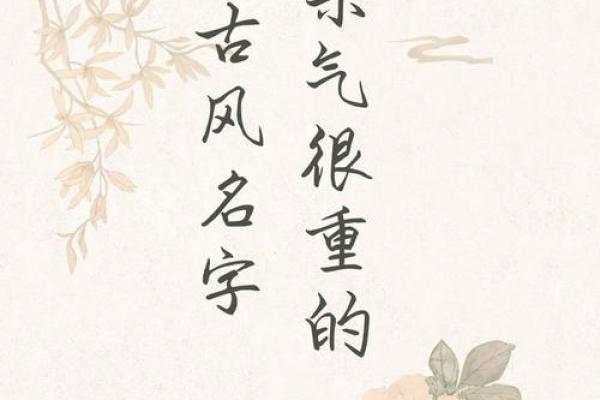 气很重的
古风名字